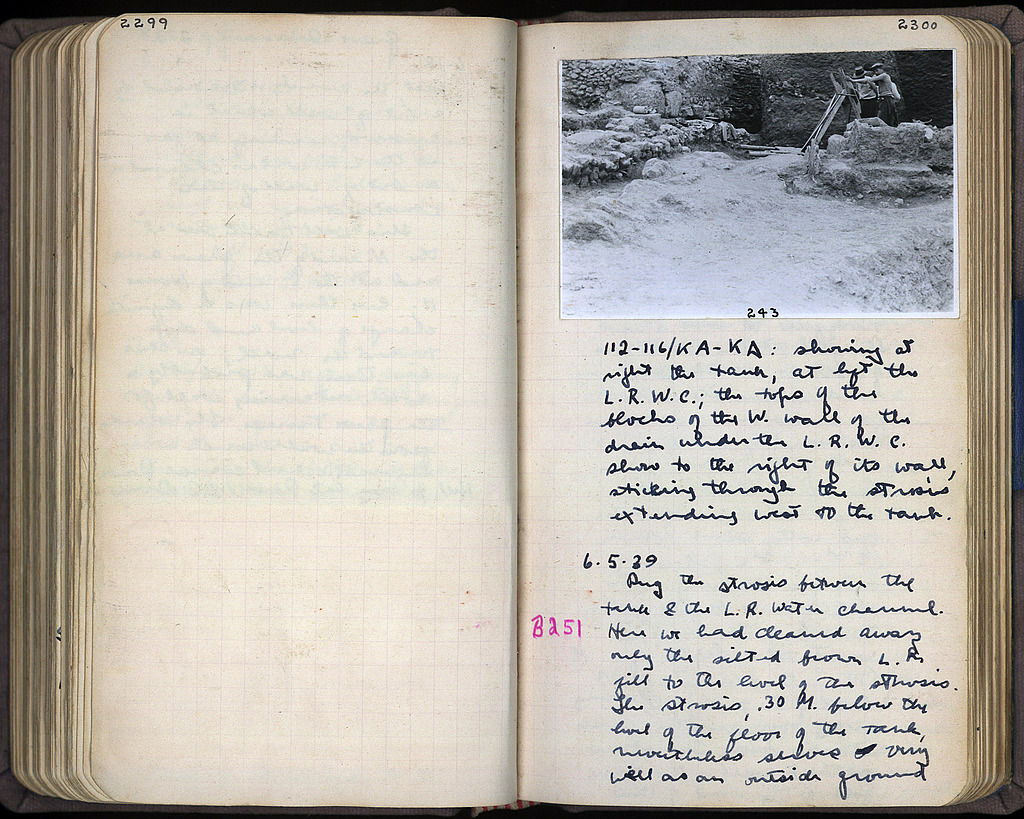 2299
2300
243
112-116/KA-KA: showing at
right the tank, at left the
L.R.W.C.; the tops of the
blocks of the W. wall of the
drain under the L.R.W.C.
show to the right of its wall,
sticking through the strosis
extending west to the tank.
6.5.39
Dug the strosis between the
tank & the L.R. Water channel.
B251
Here we had cleared away
only the silted brown L.R.
fill to the level of the strosis.
The strosis, .30 M. below the
level of the floor of the tank,
nevertheless serves very
well as an outside ground